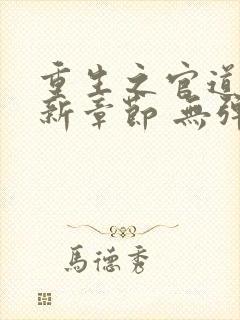 重生之官道
新章節 無彈
馬德秀